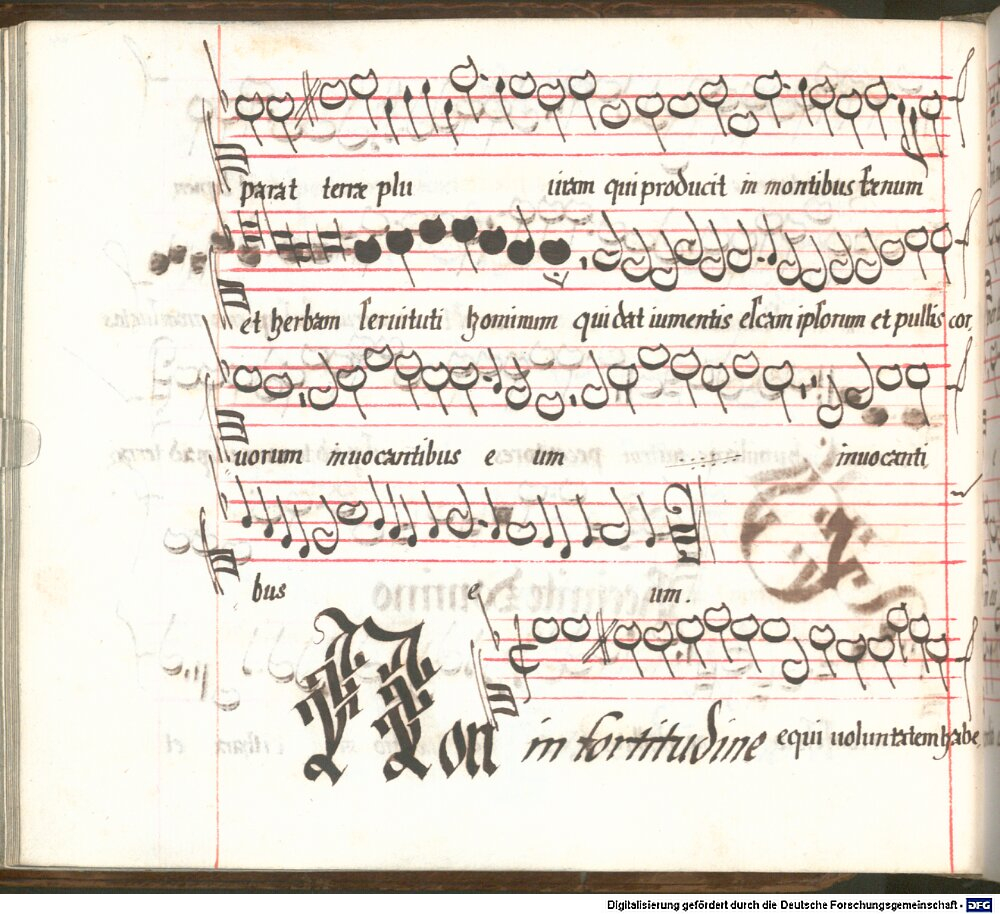 parat terræ plu uiam qui producit in montibus fænum
et herbam seruituti hominum qui dat iumentis escam ipsorum et pullis cor
uorum inuocantibus e um inuocanti
bus e um.
Non in fortitudine equi uoluntatem habe
Digitalisierung gefördert durch die Deutsche Forschungsgemeinschaft - DFG